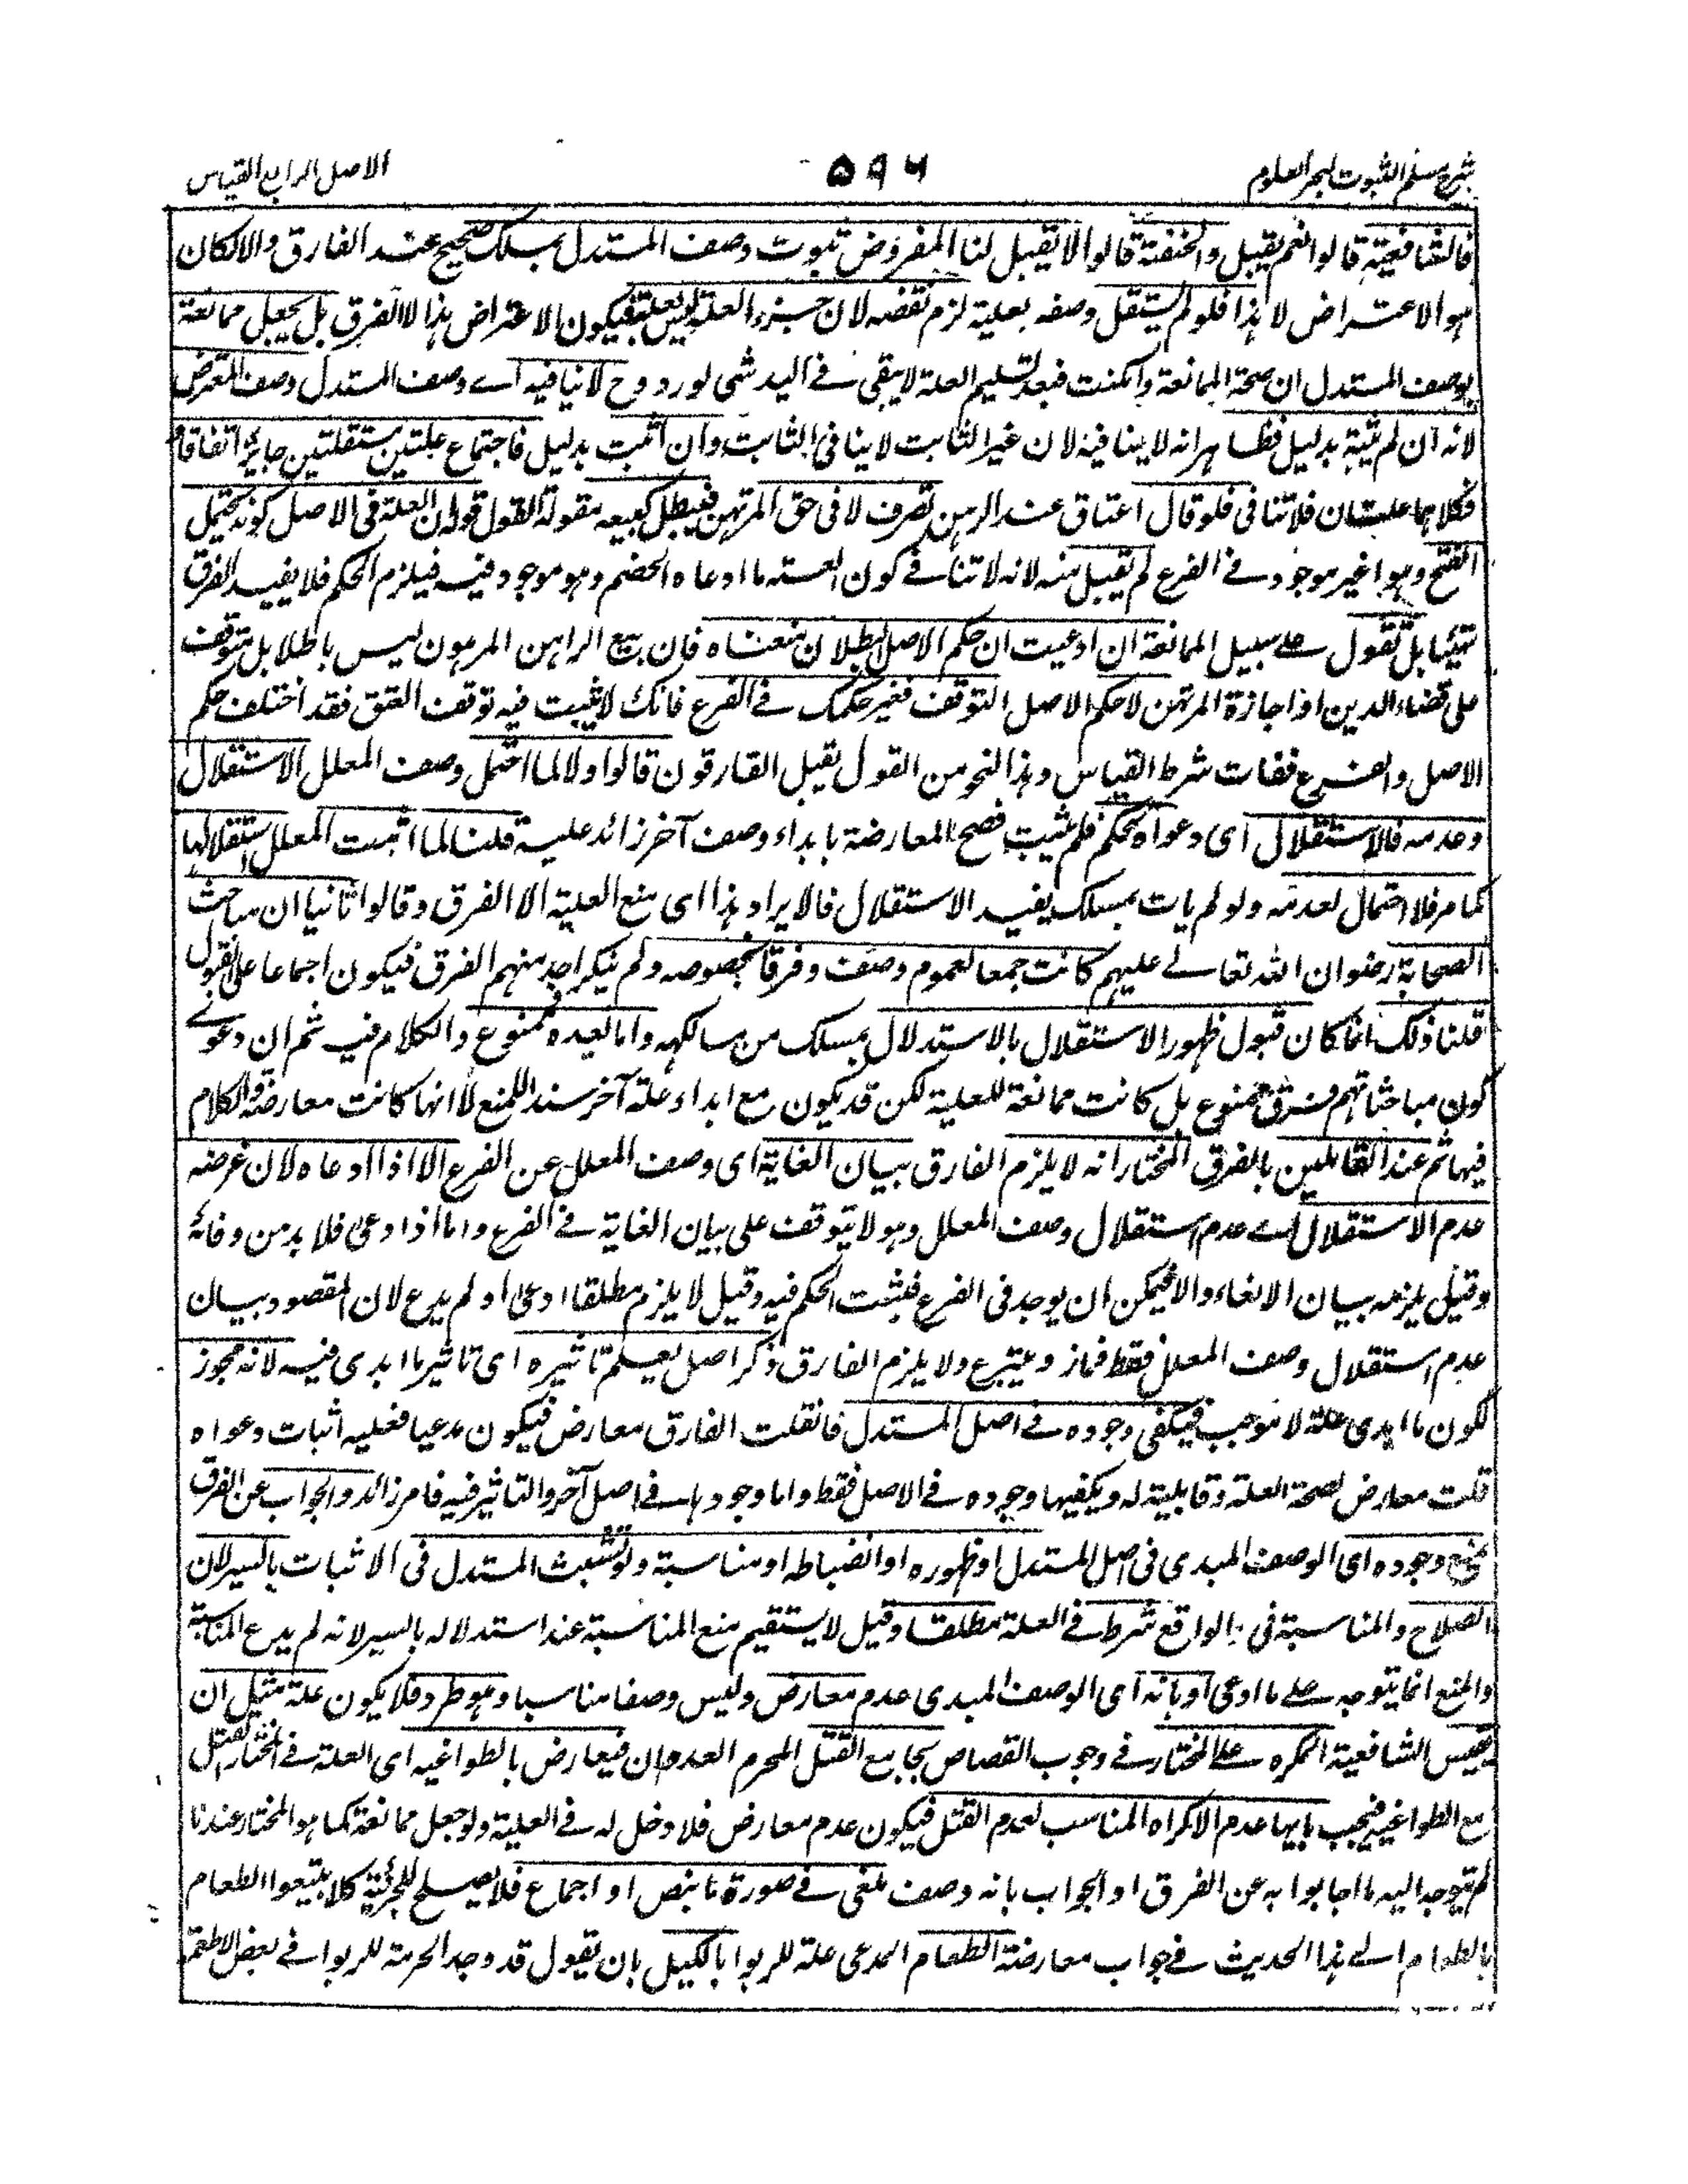 شرح مسلم الثبوت لبحر العلوم
۵۹۶
الاصل الرابع القياس
فالشافعية قالوا نعم يقبل والحنفية قالوا لا يقبل لنا المفروض ثبوت وصف المستدل بمسلك صحيح عند الفارق والا لكان
هو الاعتراض لا هذا فلو لم يستقل وصفه بعلية لزم نقضه لان جزء العلة ليس بعلة فيكون الاعتراض بهذا لا الفرق بل يجعل ممانعة
بوصف المستدل ان صحة الممانعة وامكنت فبعد تسليم العلة لا يبقى في اليد شئ لورد وح لا ينافيه اے وصف المستدل وصف المعترض
لانه ان لم يثبته بدليل فظاهر انه لا ينافيه لان غير الثابت لا ينافى الثابت وان اثبت بدليل فاجتماع علتين مستقلتين جايز اتفاقا
فكلاهما علتان فلا تنافى فلو قال اعتاق عند الرهن تصرف لا فى حق المرتهن فيبطل كبيعه بقوله القول قوله ان العلة فى الاصل كونه يحتمل
الفتح وهو غير موجود فے الفرع لم يقبل منه لانه لا تنافے كون العلة ما ادعاه الخصم وهو موجود فيه فيلزم الحكم فلا يفيد الفرق
شيئا بل تقول علے سبيل الممانعة ان ادعيت ان حكم الاصل البطلان منعناه فان بيع الراهن المرهون ليس باطلا بل يتوقف
على قضاء الدين او اجازة المرتهن لا حكم الاصل التوقف فغير حكمك فے الفرع فانك لا تثبت فيه توقف العتق فقد اختلف حكم
الاصل والفرع ففات شرط القياس وهذا النحو من القول يقبل الفارقون قالوا ولا لما احتمل وصف المعلل الاستقلال
وعدمه فالاستقلال اى دعواه تحكم فلم يثبت فصح المعارضة بابداء وصف آخر زائد عليه قلنا لما اثبت المعلل استقلالها
كما مر فلا احتمال لعدمه ولو لم يات بمسلك يفيد الاستقلال فالايراد هذا اى منع العلية الا الفرق وقالوا ثانيا ان مباحث
الصحابة رضوان الله تعالے عليهم كانت جمعا لعموم وصف وفرقا بخصوصه ولم ينكر احد منهم الفرق فيكون اجماعا على القبول
قلنا ذلك انما كان قبول ظهور الاستقلال بالاستدلال بمسلك من مسالكه واما بعده فممنوع والكلام فيه ثم ان دعوے
كون مباحثاتهم فرق ممنوع بل كانت ممانعة للعلية لكن قد يكون مع ابداء علة آخر سند اللمنع لا انها كانت معارضة والكلام
فيها ثم عند القائلين بالفرق المختار انه لا يلزم الفارق بيان الغاية اى وصف المعلل عن الفرع الا اذا ادعاه لان غرضه
عدم الاستقلال اے عدم استقلال وصف المعلل وهو لا يتوقف على بيان الغاية فے الفرع واما اذا ادعى فلا بد من وفائه
وقيل يلزمه بيان الالغاء والا فيمكن ان يوجد فى الفرع فيثبت الحكم فيه وقيل لا يلزم مطلقا ادعى او لم يدع لان المقصود بيان
عدم استقلال وصف المعلل فقط فماز ويتبرع ولا يلزم الفارق ذكر اصل يعلم تاثيره اى تاثير ما ابدى فيه لانه مجوز
لكون ما ابدى علة لا موجب فيكفى وجوده فے اصل المستدل فانقلت الفارق معارض فيكون مدعيا فعليه اثبات دعواه
قلت معارض لصحة العلة وقابلية له ويكفيها وجوده فے الاصل فقط واما وجودها فے اصل آخر والتاثير فيه فامر زائد والجواب عن الفرق
بمنع وجوده اى الوصف المبدى فى اصل المستدل او ظهوره او انضباطه او مناسبة ولو تشبث المستدل فى الاثبات بالسير لان
الصلاح والمناسبة فى الواقع شرط فے العلة مطلقا وقيل لا يستقيم منع المناسبة عند استدلاله بالسير لانه لم يدع المناسبة
والمنع انما يتوجه علے ما ادعى او بانه اى الوصف المبدى عدم معارض وليس وصفا مناسبا وهو طرد فلا يكون علة مثل ان
يقيس الشافعية المكره علے المختار فے وجوب القصاص بجامع القتل المحرم العدوان فيعارض بالطواغيه اى العلة فے المختار القتل
مع الطواغية فيجب بانها عدم الاكراه المناسب لعدم القتل فيكون عدم معارض فلا دخل له فے العلية ولو جعل ممانعة كما هو المختار عندنا
لم يتوجه اليه ما اجابوا به عن الفرق او الجواب بانه وصف ملغى فے صورة ما بنص او اجماع فلا يصلح للجزئية كلا يبتيعوا الطعام
بالطعام الے هذا الحديث فے جواب معارضة الطعام المدعى علة للربوا بالكيل بان يقول قد وجد الحرمة للربوا فے بعض الاطعمة